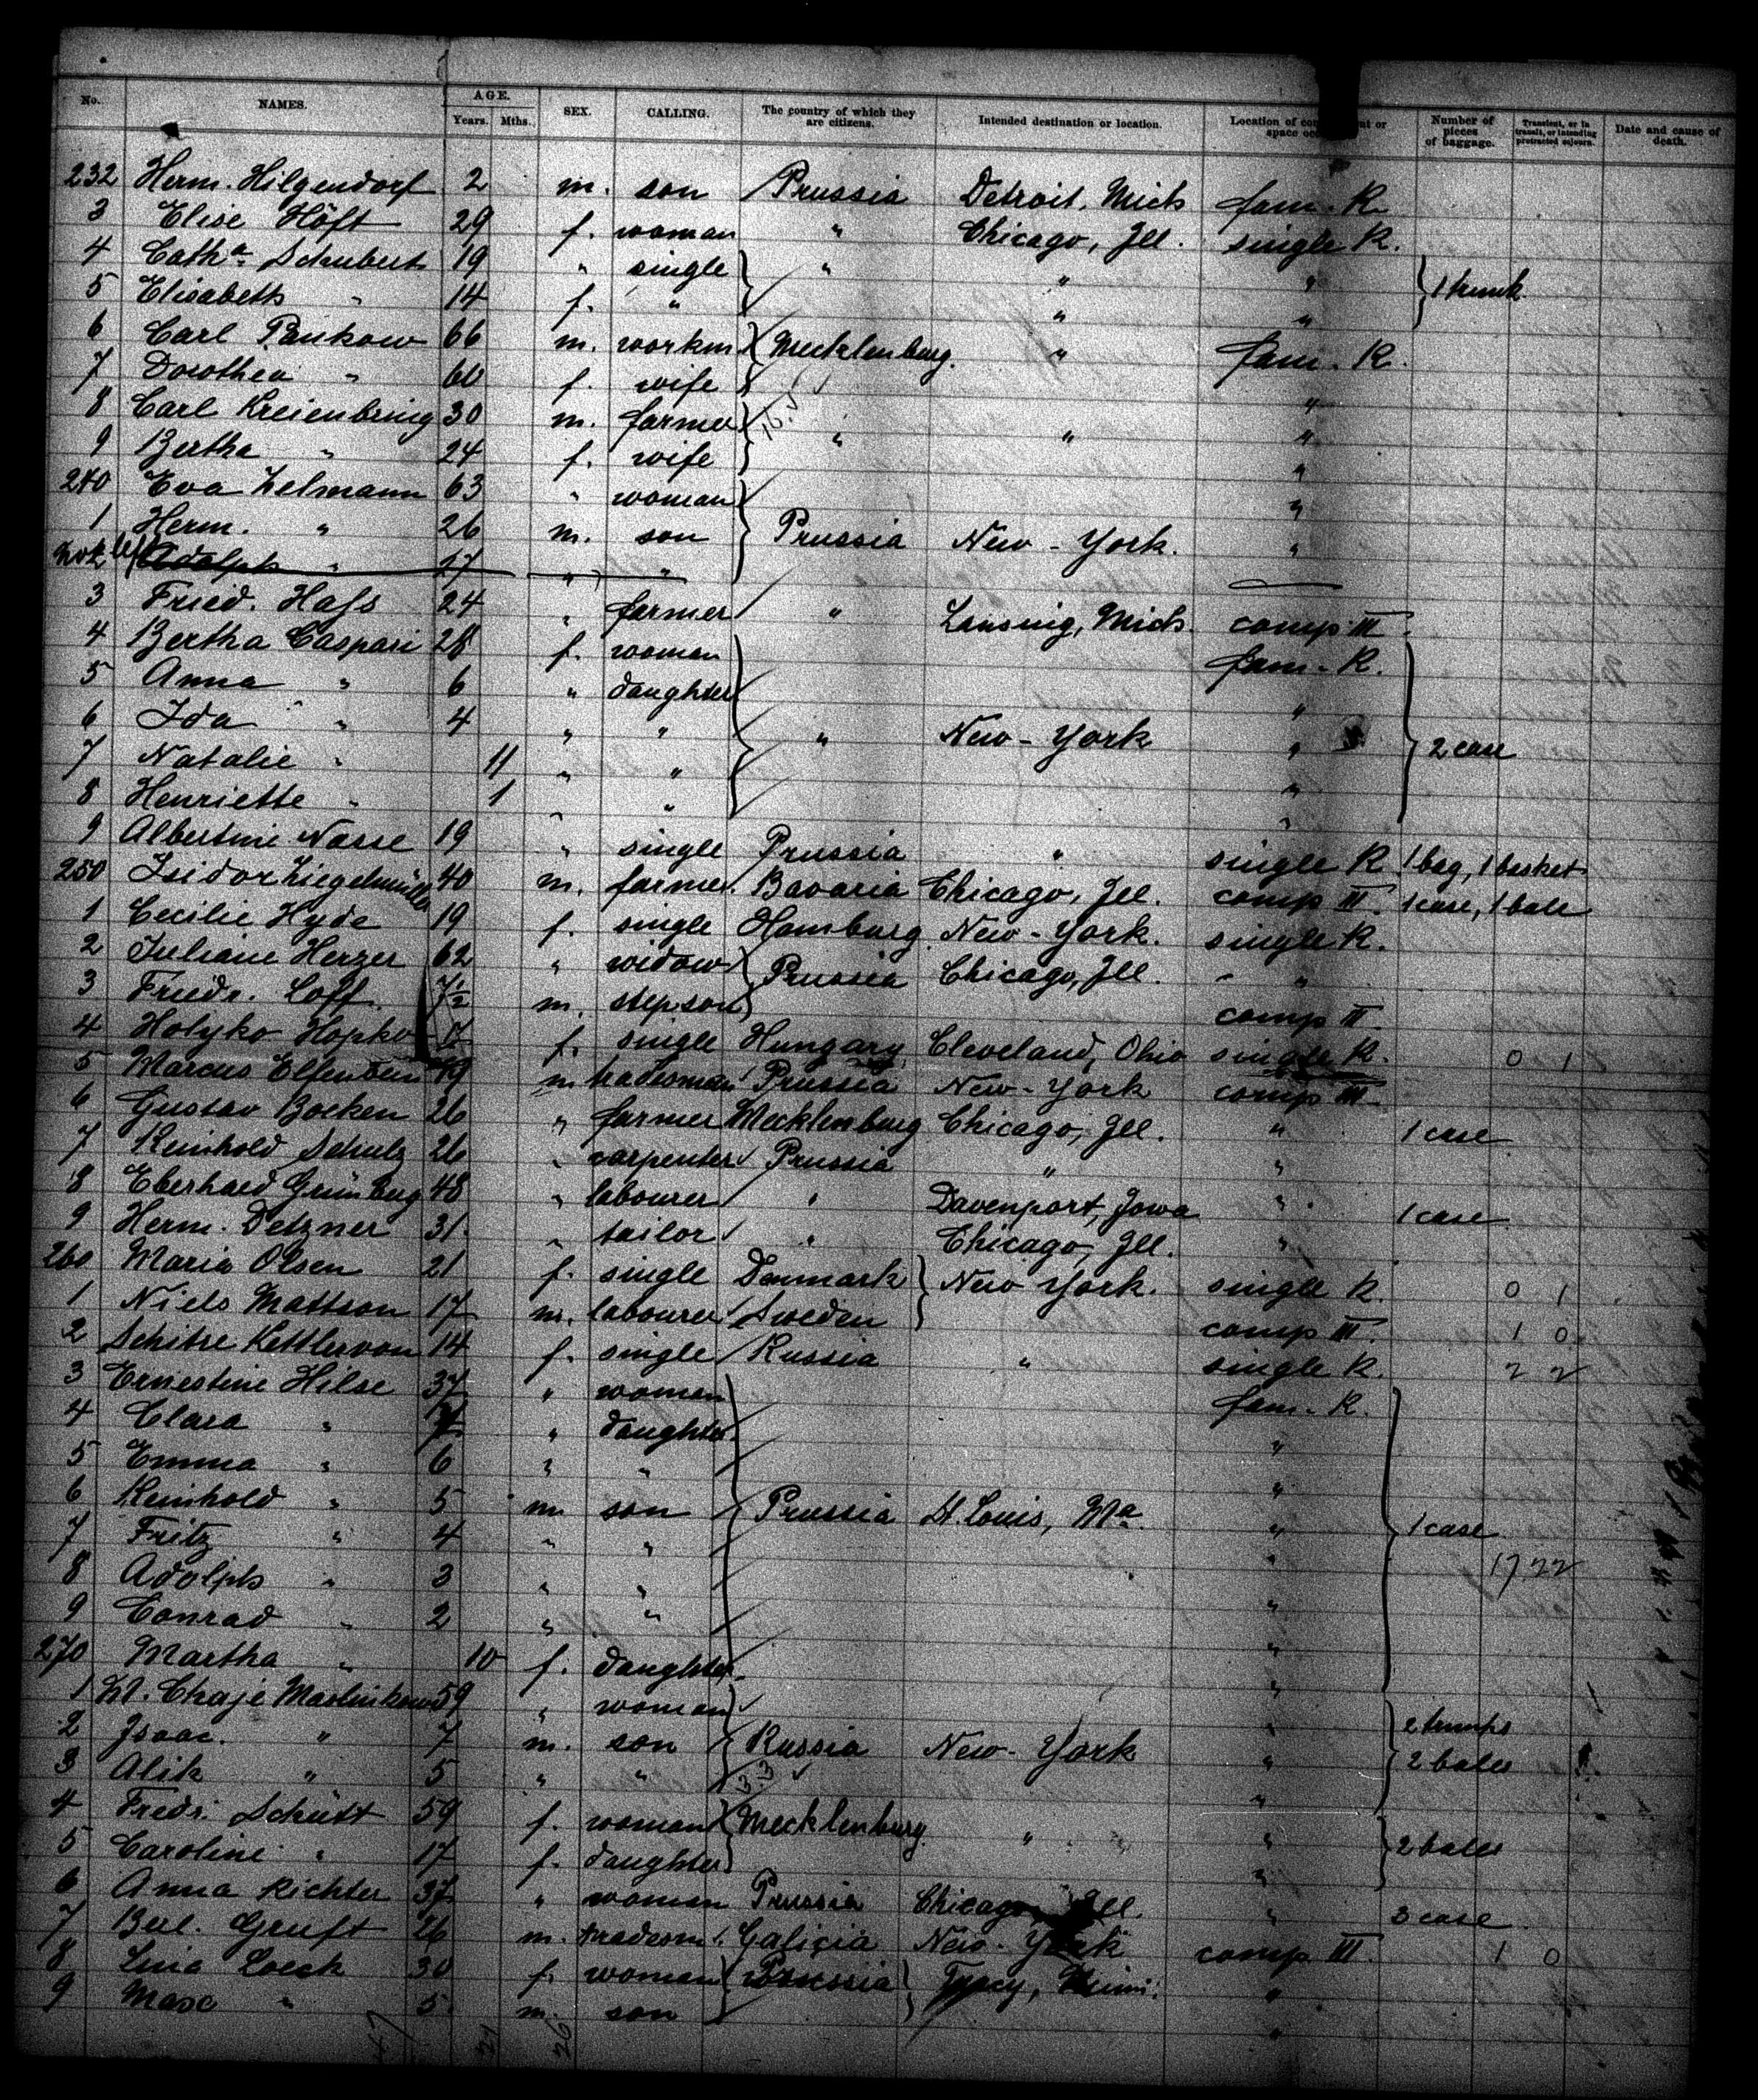 No. NAMES. AGE. Years. Mths. SEX. CALLING. The country of which they are citizens. Intended destination or location. Location of or space Number of pieces of baggage. Transient, or in transit, or intending protracted sojourn. Date and cause of death.
232 Herm. Hilgendorf 2 m. son Prussia Detroit, Mich fam. R.
3 Elise Höft 29 f. woman " Chicago, Ill. single R.
4 Cath.a Schubert 19 " single " " " 1 trunk.
5 Elisabeth " 14 f. " " "
6 Carl Pankow 66 m. workm Mecklenburg. " fam. R.
7 Dorothea " 60 f. wife "
8 Carl Kreienbring 30 m. farmer " " "
9 Bertha " 24 f. wife "
240 Eva Zelmann 63 " woman "
1 Herm. " 26 m. son Prussia New-York. "
2 Adolph " 27 " "
3 Fried. Hass 24 " farmer " Lansing, Mich. comp. III.
4 Bertha Caspari 28 f. woman fam. R.
5 Anna " 6 " daughter "
6 Ida " 4 " " " New-York " 2 case
7 Natalie " 11 " " "
8 Henriette " 1 " " "
9 Albertine Nasse 19 " single Prussia " single R. 1 bag, 1 basket
250 Isidor Ziegelmüller 40 m. farmer. Bavaria Chicago, Ill. comp III. 1 case, 1 bale
1 Cecilie Hyde 19 f. single Hamburg. New-York. single R.
2 Juliane Herzer 62 " widow Prussia Chicago, Ill. "
3 Friedr. Loff. 7½ m. stepson comp II.
4 Holyko Hopko f. single Hungary Cleveland, Ohio single R. 0 1
5 Marcus Elfenbein 49 m tradesman Prussia New-York comp III
6 Gustav Boeken 26 " farmer Mecklenburg Chicago, Ill. " 1 case
7 Reinhold Schulz 26 " carpenter Prussia " "
8 Eberhard Grünberg 48 " labourer " Davenport, Iowa " 1 case
9 Herm. Detzner 31. " tailor " Chicago, Ill. "
260 Maria Olsen 21 f. single Denmark New York. single R. 0 1
1 Niels Mattson 17 m. labourer Sweden comp III. 1 0
2 Schitre Kettlervon 14 f. single Russia " single R. 2 2
3 Ernestine Hilse 37 " woman fam. R.
4 Clara " " daughter. "
5 Emma " 6 " " "
6 Reinhold " 5 m son Prussia St. Louis, Ma. " 1 case
7 Fritz " 4 " " " 17 22
8 Adolph " 3 " " "
9 Conrad " 2 " " "
270 Martha " 10 f. daughter. "
1 Chaje 59 " woman "
2 Isaac. " 7 m. son Russia New-York " 2 bales
3 Alik " 5 " " "
4 Fredr. Schütt 59 f. woman Mecklenburg. " " 2 bales
5 Caroline " 17 f. daughter "
6 Anna Richter 37 " woman Prussia Chicago Ill. " 3 case
7 Berl. Gruft 26 m. tradesm. Galicia New-York comp III. 1 0
8 Lina Loeck 30 f. woman Prussia Tracy, "
9 Maxe " 5. m. son "